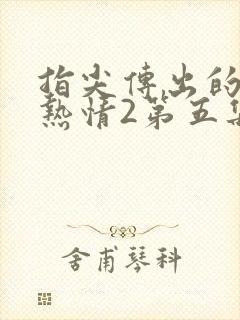 指尖傳出的
熱情2第五集
舍甫琴科